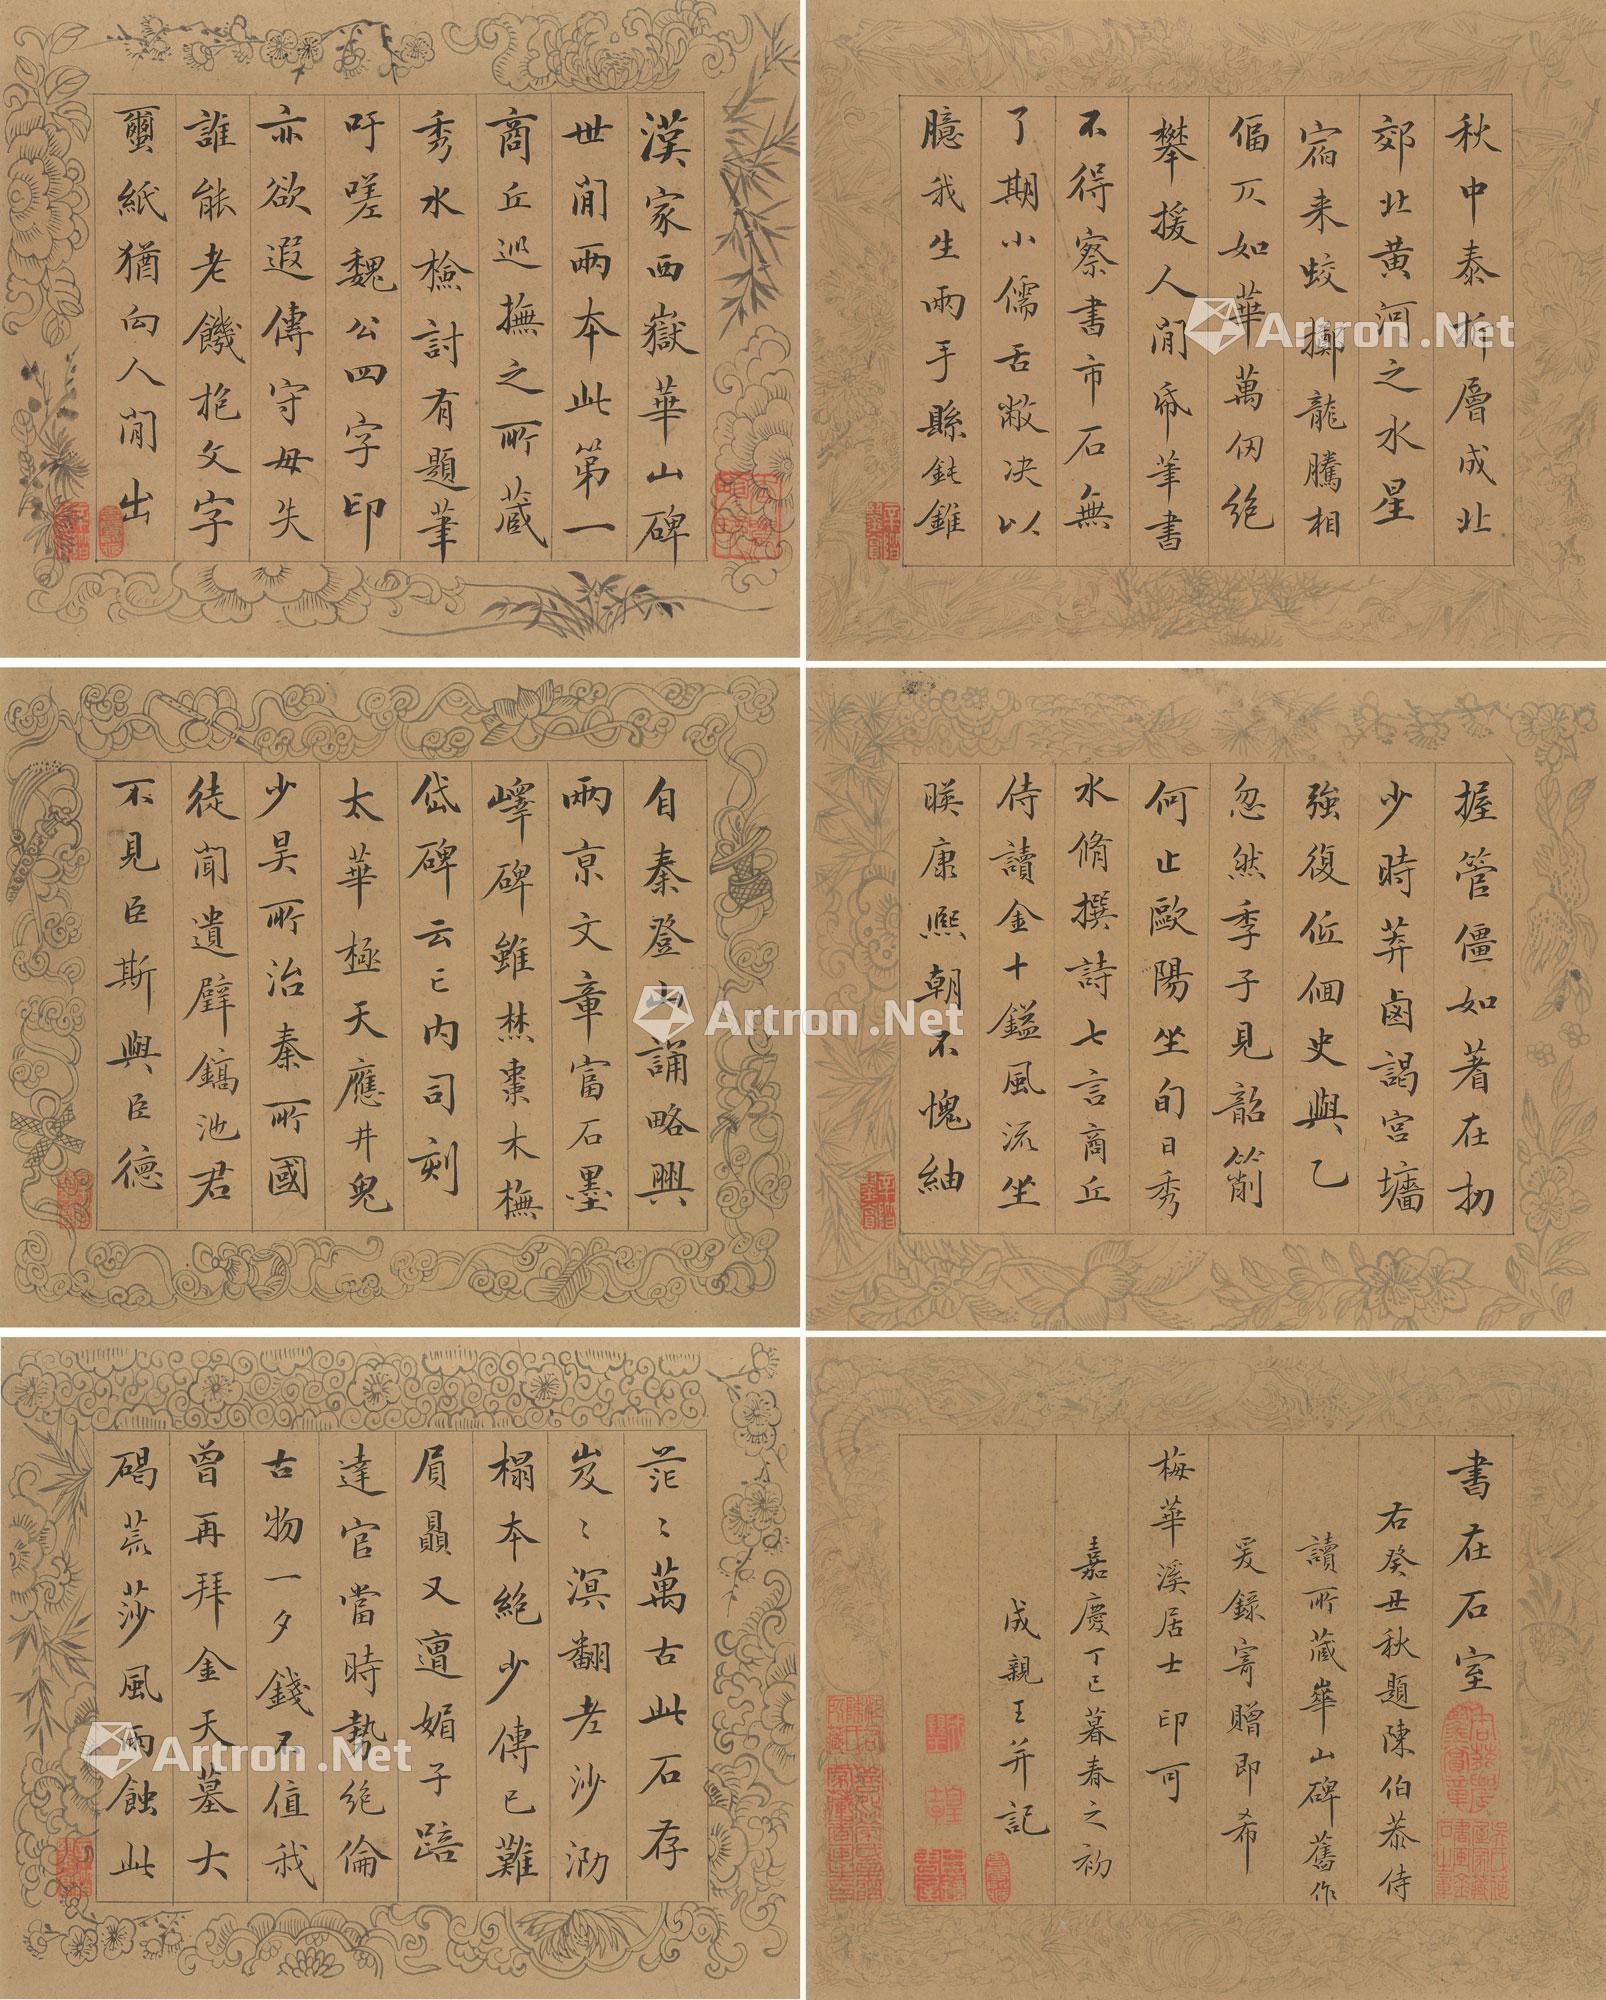 漢家西嶽華山碑
世間兩本此第一
商丘巡撫之所藏
秀水檢討有題筆
吁嗟魏公四字印
亦欲遐傳守毋失
誰能老饑抱文字
爾紙猶向人間出
自秦登山誦略興
兩京文章富石墨
嶧碑雖焚棗木橅
岱碑云亡内司刻
太華極天應井鬼
少昊所治秦所國
徒聞遺璧鎬池君
不見臣斯與臣德
茫〻萬古此石存
岌〻溟翻老沙泐
榻本絶少傳已難
屓贔又遭媚子踣
達官當時勢絶倫
古物一夕錢不值
曾再拜金天墓大
碣荒莎風雨蝕此
秋中泰折層成北
郊北黄河之水星
宿来蛟擲龍騰相
偪仄如華萬仞絶
攀援人間帋筆書
不得察書市石無
了期小儒舌敝決以
臆我生兩手縣鈍錐
握管僵如著在
少時莽鹵謁宫墻
強復低佪史與乙
忽然季子見韶箾
何止歐陽坐旬日秀
水脩撰詩七言商丘
侍讀金十鎰風流坐
暎康熙朝不愧紬
書在石室
右癸丑秋題陳伯恭侍
讀所藏崋山碑舊作
爰録寄贈即希
梅華溪居士印可
嘉慶丁巳暮春之初
成親王并記
Artron.Net
Artron.Net
Artron.Net